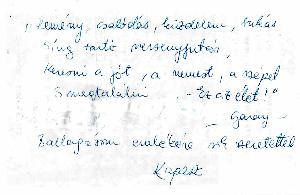 "Remény, csalódás, küzdelem, bukás
Sírig tartó versenyfutás,
Keresni a jót, a nemest, a szépet
S megtalálni - Ez az élet!"
- Garay -
Ballagásom emlékére sok szeretettel